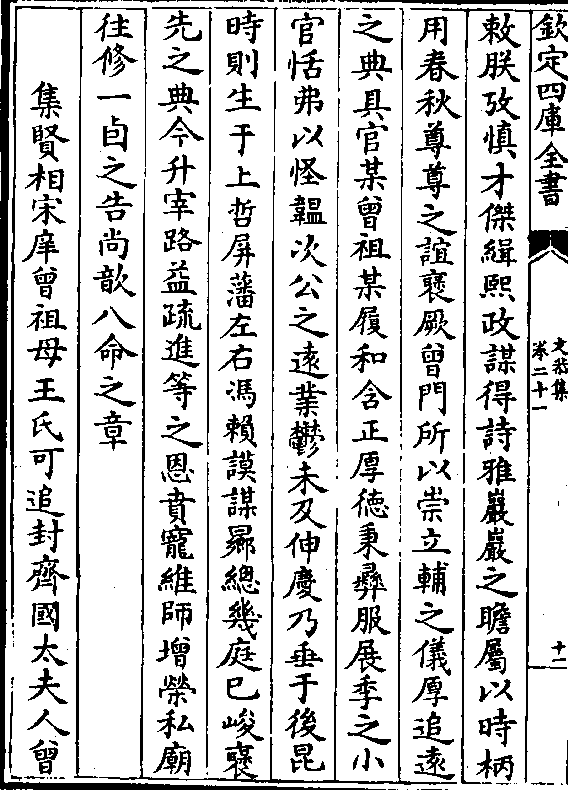 欽定四庫全書
文恭集
卷二十一
十二
敕朕攷慎才傑緝熙政謀得詩雅巖巖之瞻屬以時柄
用春秋尊尊之誼襃厥曾門所以崇立輔之儀厚追遠
之典具官某曾祖某履和含正厚徳秉彝服展季之小
官恬弗以怪韞次公之遠業鬱未及伸慶乃垂于後昆
時則生于上哲屏藩左右馮賴謨謀曏總幾庭已峻襃
先之典今升宰路益疏進等之恩賁寵維師增榮私廟
往修一卣之告尚歆八命之章
集賢相宋庠曾祖母王氏可追封齊國太夫人曾